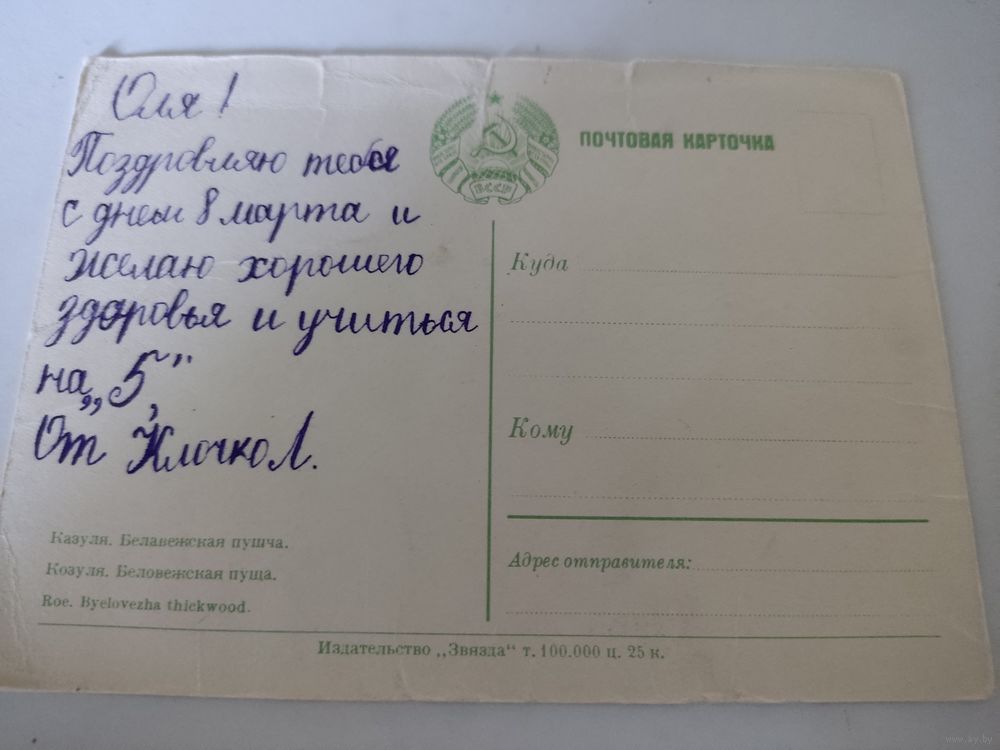 Оля!
Поздровляю тебя
с днем 8 марта и
желаю хорошего
здоровья и учиться
на „5,"
От Клочко Л.
БССР
ПОЧТОВАЯ КАРТОЧКА
Куда
Кому
Адрес отправителя:
Казуля. Белавежская пушча.
Козуля. Беловежская пуща.
Roe. Byelovezha thickwood.
Издательство „Звязда“ т. 100.000 ц. 25 к.
www.ay.by